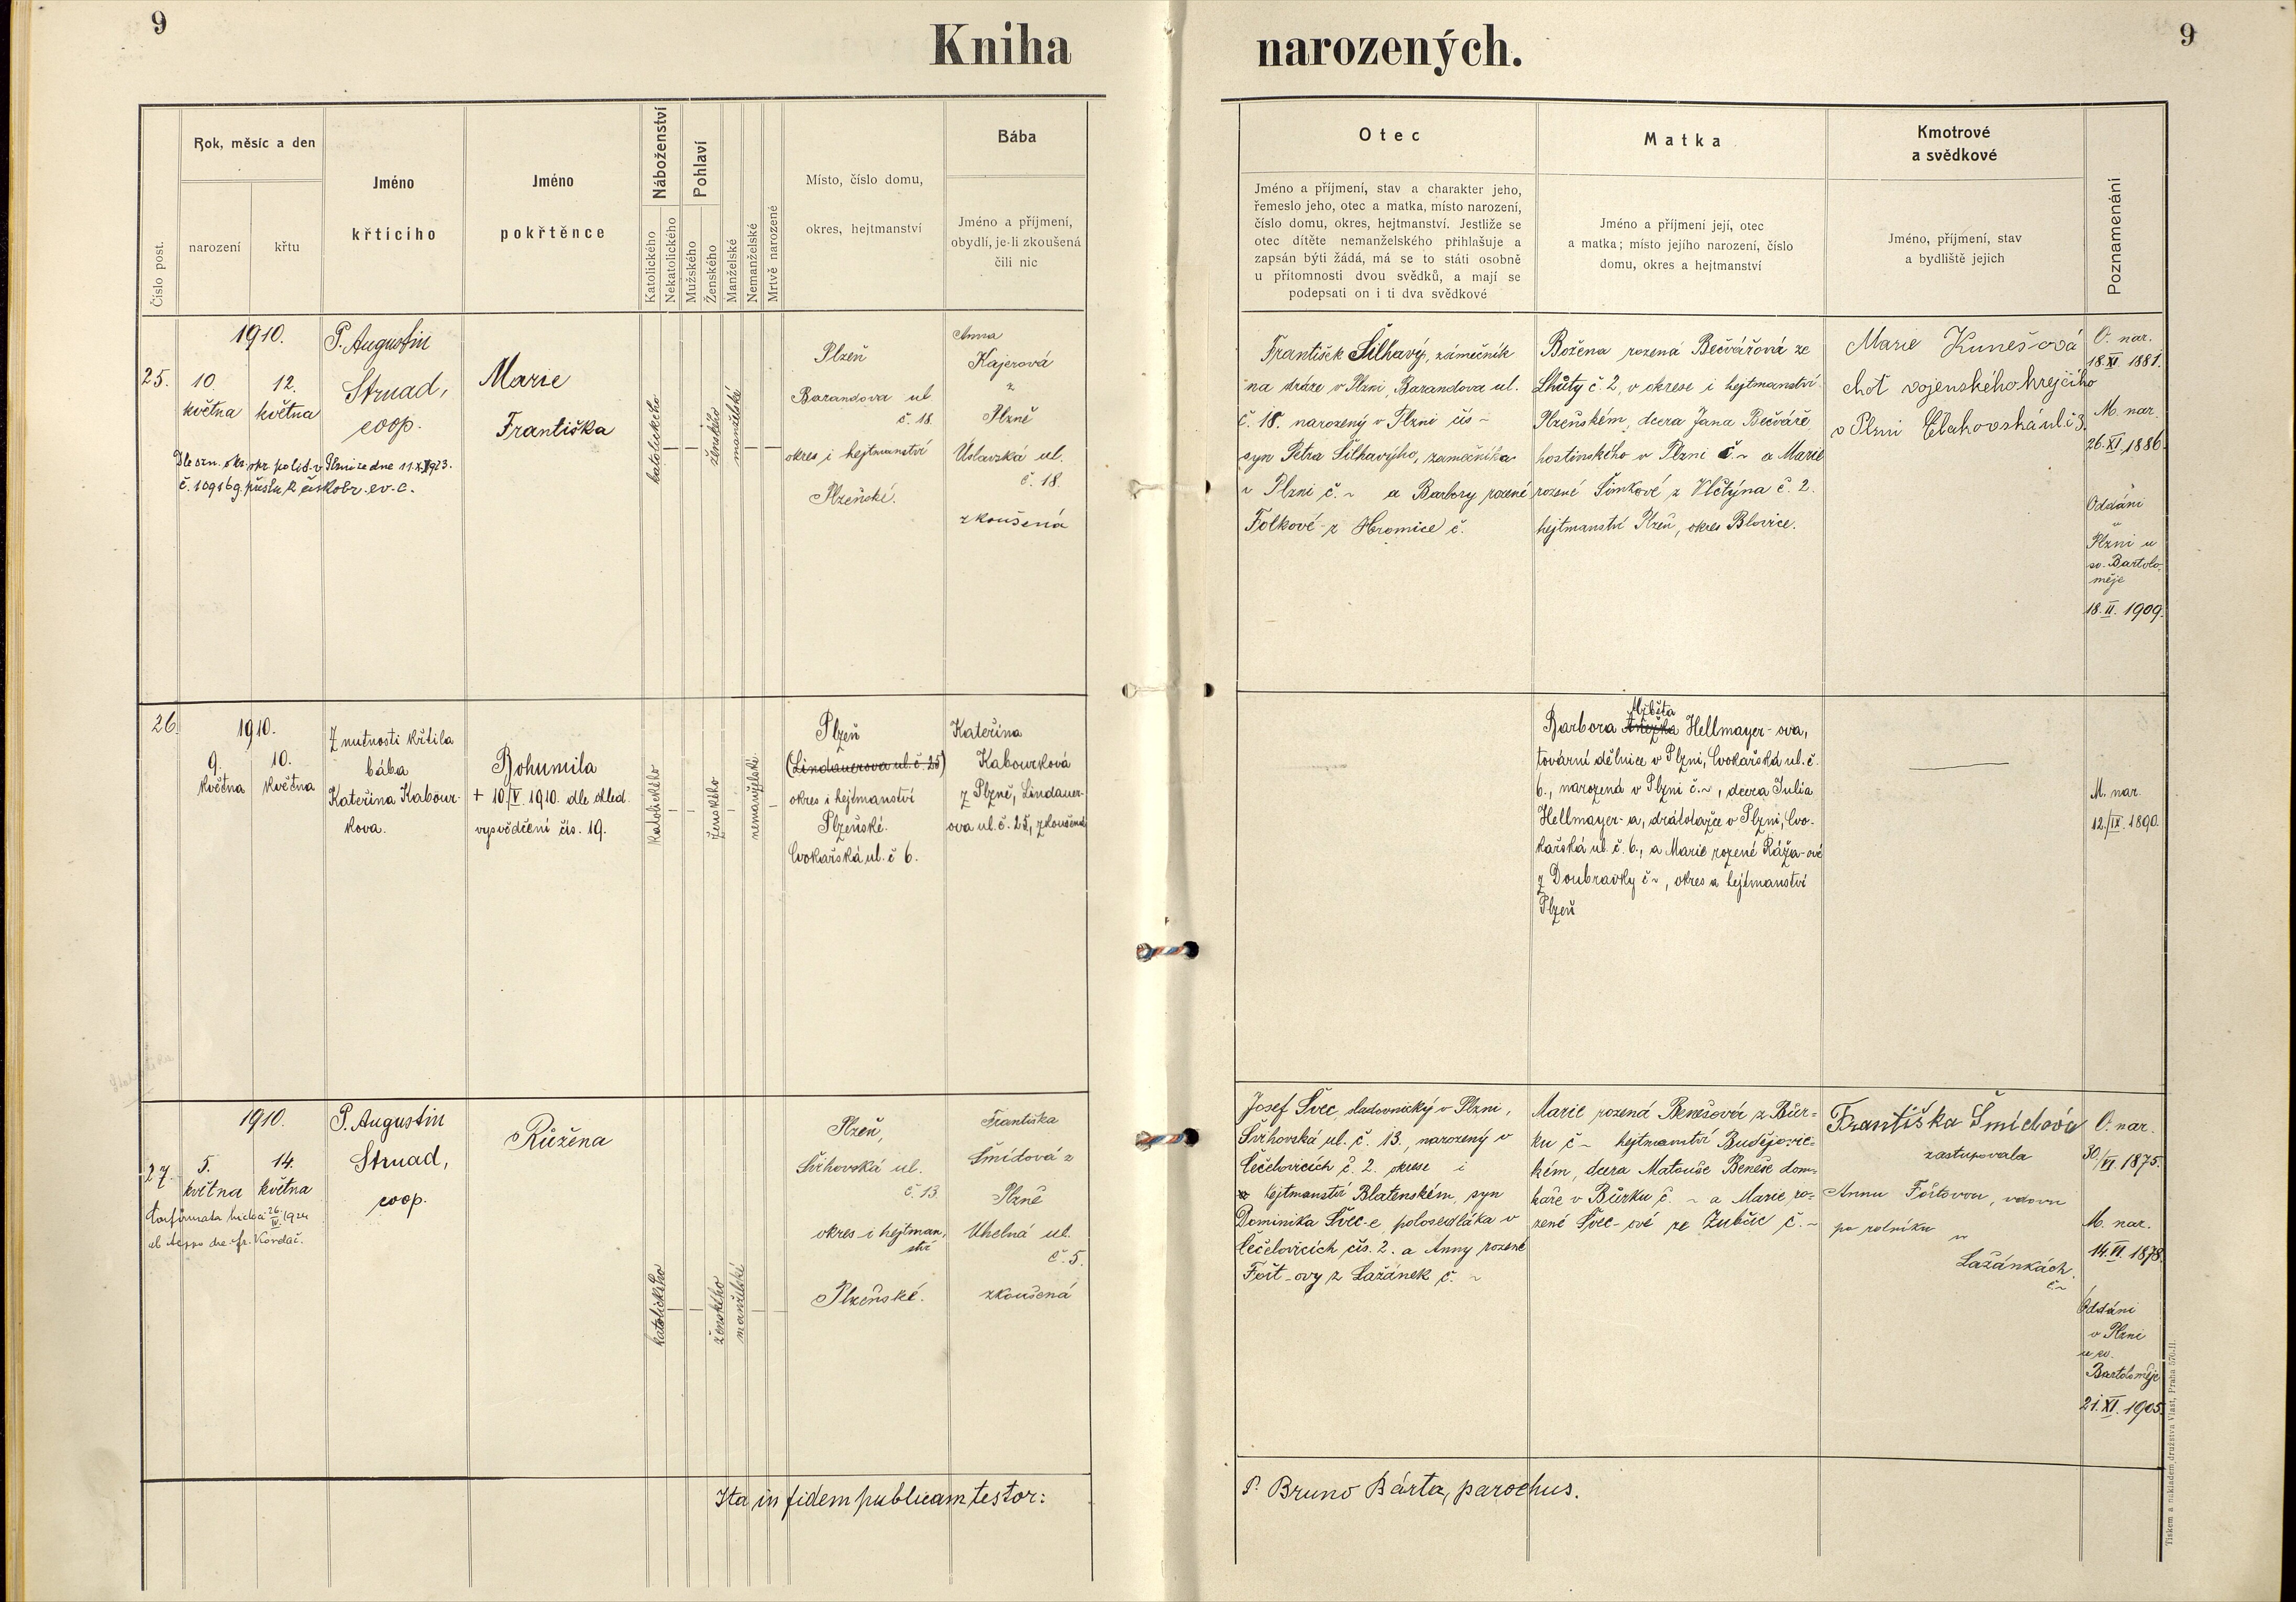 9
Kniha narozených.
9
Číslo post.
Rok, měsíc a den
narození
křtu
Jméno
křticího
Jméno
pokřtěnce
Náboženství
Katolického
Nekatolického
Pohlaví
Mužského
Ženského
Manželské
Nemanželské
Mrtvě narozené
Místo, číslo domu,
okres, hejtmanství
Bába
Jméno a příjmení,
obydlí, je-li zkoušená
čili nic
Otec
Jméno a příjmení, stav a charakter jeho,
řemeslo jeho, otec a matka, místo narození,
číslo domu, okres, hejtmanství. Jestliže se
otec dítěte nemanželského přihlašuje a
zapsán býti žádá, má se to státi osobně
u přítomnosti dvou svědků, a mají se
podepsati on i ti dva svědkové
Matka
Jméno a příjmení její, otec
a matka; místo jejího narození, číslo
domu, okres a hejtmanství
Kmotrové
a svědkové
Jméno, příjmení, stav
a bydliště jejich
Poznamenání
25.
1910.
10.
května
12.
května
P. Augustin
Strnad,
coop.
Marie
Františka
katolického
ženského
manželské
Plzeň
Barandova ul
č. 18.
okres i hejtmanství
Plzeňské.
Anna
Kajerová
z
Plzně
Úslavská ul.
č. 18.
zkoušená
František Šilhavý, zámečník
na dráze v Plzni, Barandova ul.
č. 18. narozený v Plzni čís ~
syn Petra Šilhavýho, zámečníka
v Plzni č. ~ a Barbory rozené
Folkové z Hromice č.
Božena rozená Bečvářová ze
Lhůty č. 2, v okrese i hejtmanství
Plzeňském, dcera Jana Bečváře
hostinského v Plzni č. ~ a Marie
rozené Šimkové z Vlčtýna č. 2.
hejtmanství Plzeň, okres Blovice.
Marie Kunešová
choť vojenského krejčího
v Plzni
O. nar.
18.XI 1881.
M. nar.
26.XI.1886.
Oddáni
v
Plzni u
sv. Bartolo-
měje
18.II. 1909.
26.
1910.
9.
května
10.
května
Z nutnosti křtila
bába
Kateřina Kabour-
kova.
Bohumila
+ 10/V. 1910. dle ohled.
vysvědčení čís. 19.
katolického
ženského
nemanželské
Plzeň
(Lindauerova ul. č. 25)
okres i hejtmanství
Plzeňské.
Cvokařská ul. č 6.
Kateřina
Kabourková
z Plzně, Lindauer-
ova ul. č. 25, zkoušená
Barbora Hellmayer-ova,
tovární dělnice v Plzni, Cvokařská ul. č.
6., narozená v Plzni č. ~, dcera Julia
Hellmayer-a, drátotaže v Plzni, Cvo-
kařská ul. č. 6., a Marie rozené Ráža-ové
z Doubravky č ~, okres a hejtmanství
Plzeň
M. nar.
12./IX. 1890.
27.
1910.
5.
května
14.
května
P. Augustin
Strnad,
coop.
Růžena
katolického
ženského
manželské
Plzeň,
Švihovská ul.
č. 13.
okres i hejtman-
ství
Plzeňské.
Františka
Šmídová z
Plzně
Uhelná ul.
č. 5.
zkoušená
Josef Švec, sladovnický v Plzni,
Švihovská ul. č. 13., narozený v
Čečelovicích č. 2. okrese i
hejtmanství Blatenském, syn
Dominika Švec-e, polosedláka v
Čečelovicích čís. 2. a Anny rozené
Fořt-ovy z Lažánek č. ~
Marie rozená Benešová z Bůr-
ku č ~ hejtmanství Budějovic-
kém, dcera Matouše Beneše dom-
káře v Bůrku č. ~ a Marie ro-
zené Švec-ové ze Zubčic č. ~
Františka Šmídová
zastupovala
Annu Fořtovou, vdovu
po rolníku v
Lažánkách.
č. ~
O. nar.
30/VI. 1875.
M. nar.
14.VI. 1878.
Oddáni
v Plzni
u sv.
Bartoloměje
21.XI. 1905.
Ita in fidem publicam testor:
P. Bruno Bárta, parochus.
Tiskem a nákladem družstva Vlast, Praha 570-II.